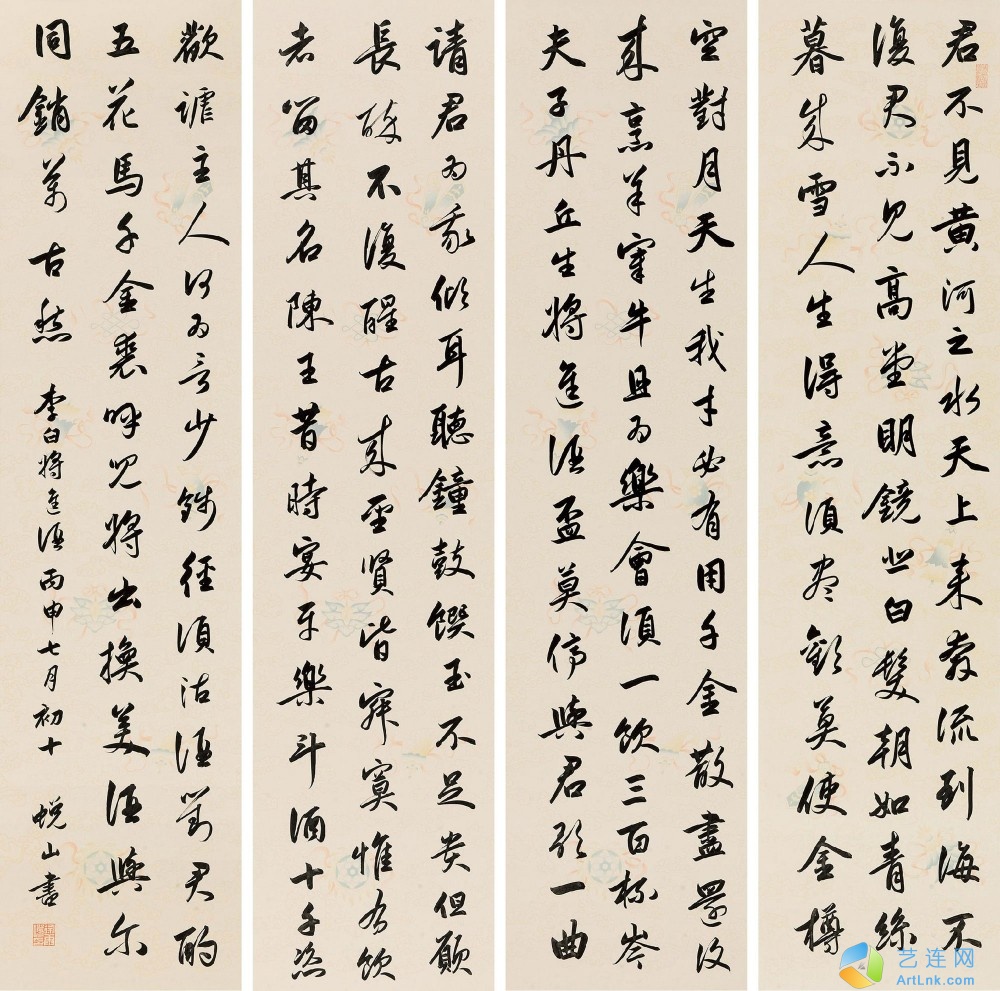 君不見黃河之水天上來奔流到海不
復君不見高堂明鏡悲白髮朝如青絲
暮成雪人生得意須盡歡莫使金樽
空對月天生我才必有用千金散盡還復
來烹羊宰牛且為樂會須一飲三百杯岑
夫子丹丘生將進酒盃莫停與君歌一曲
請君為我傾耳聽鐘鼓饌玉不足貴但願
長醉不復醒古來聖賢皆寂寞惟有飲
者留其名陳王昔時宴平樂斗酒十千恣
歡謔主人何為言少錢徑須沽酒對君酌
五花馬千金裘呼兒將出換美酒與爾
同銷萬古愁 李白將進酒丙申七月初十 蛻山書
艺连网
ArtLnk.com